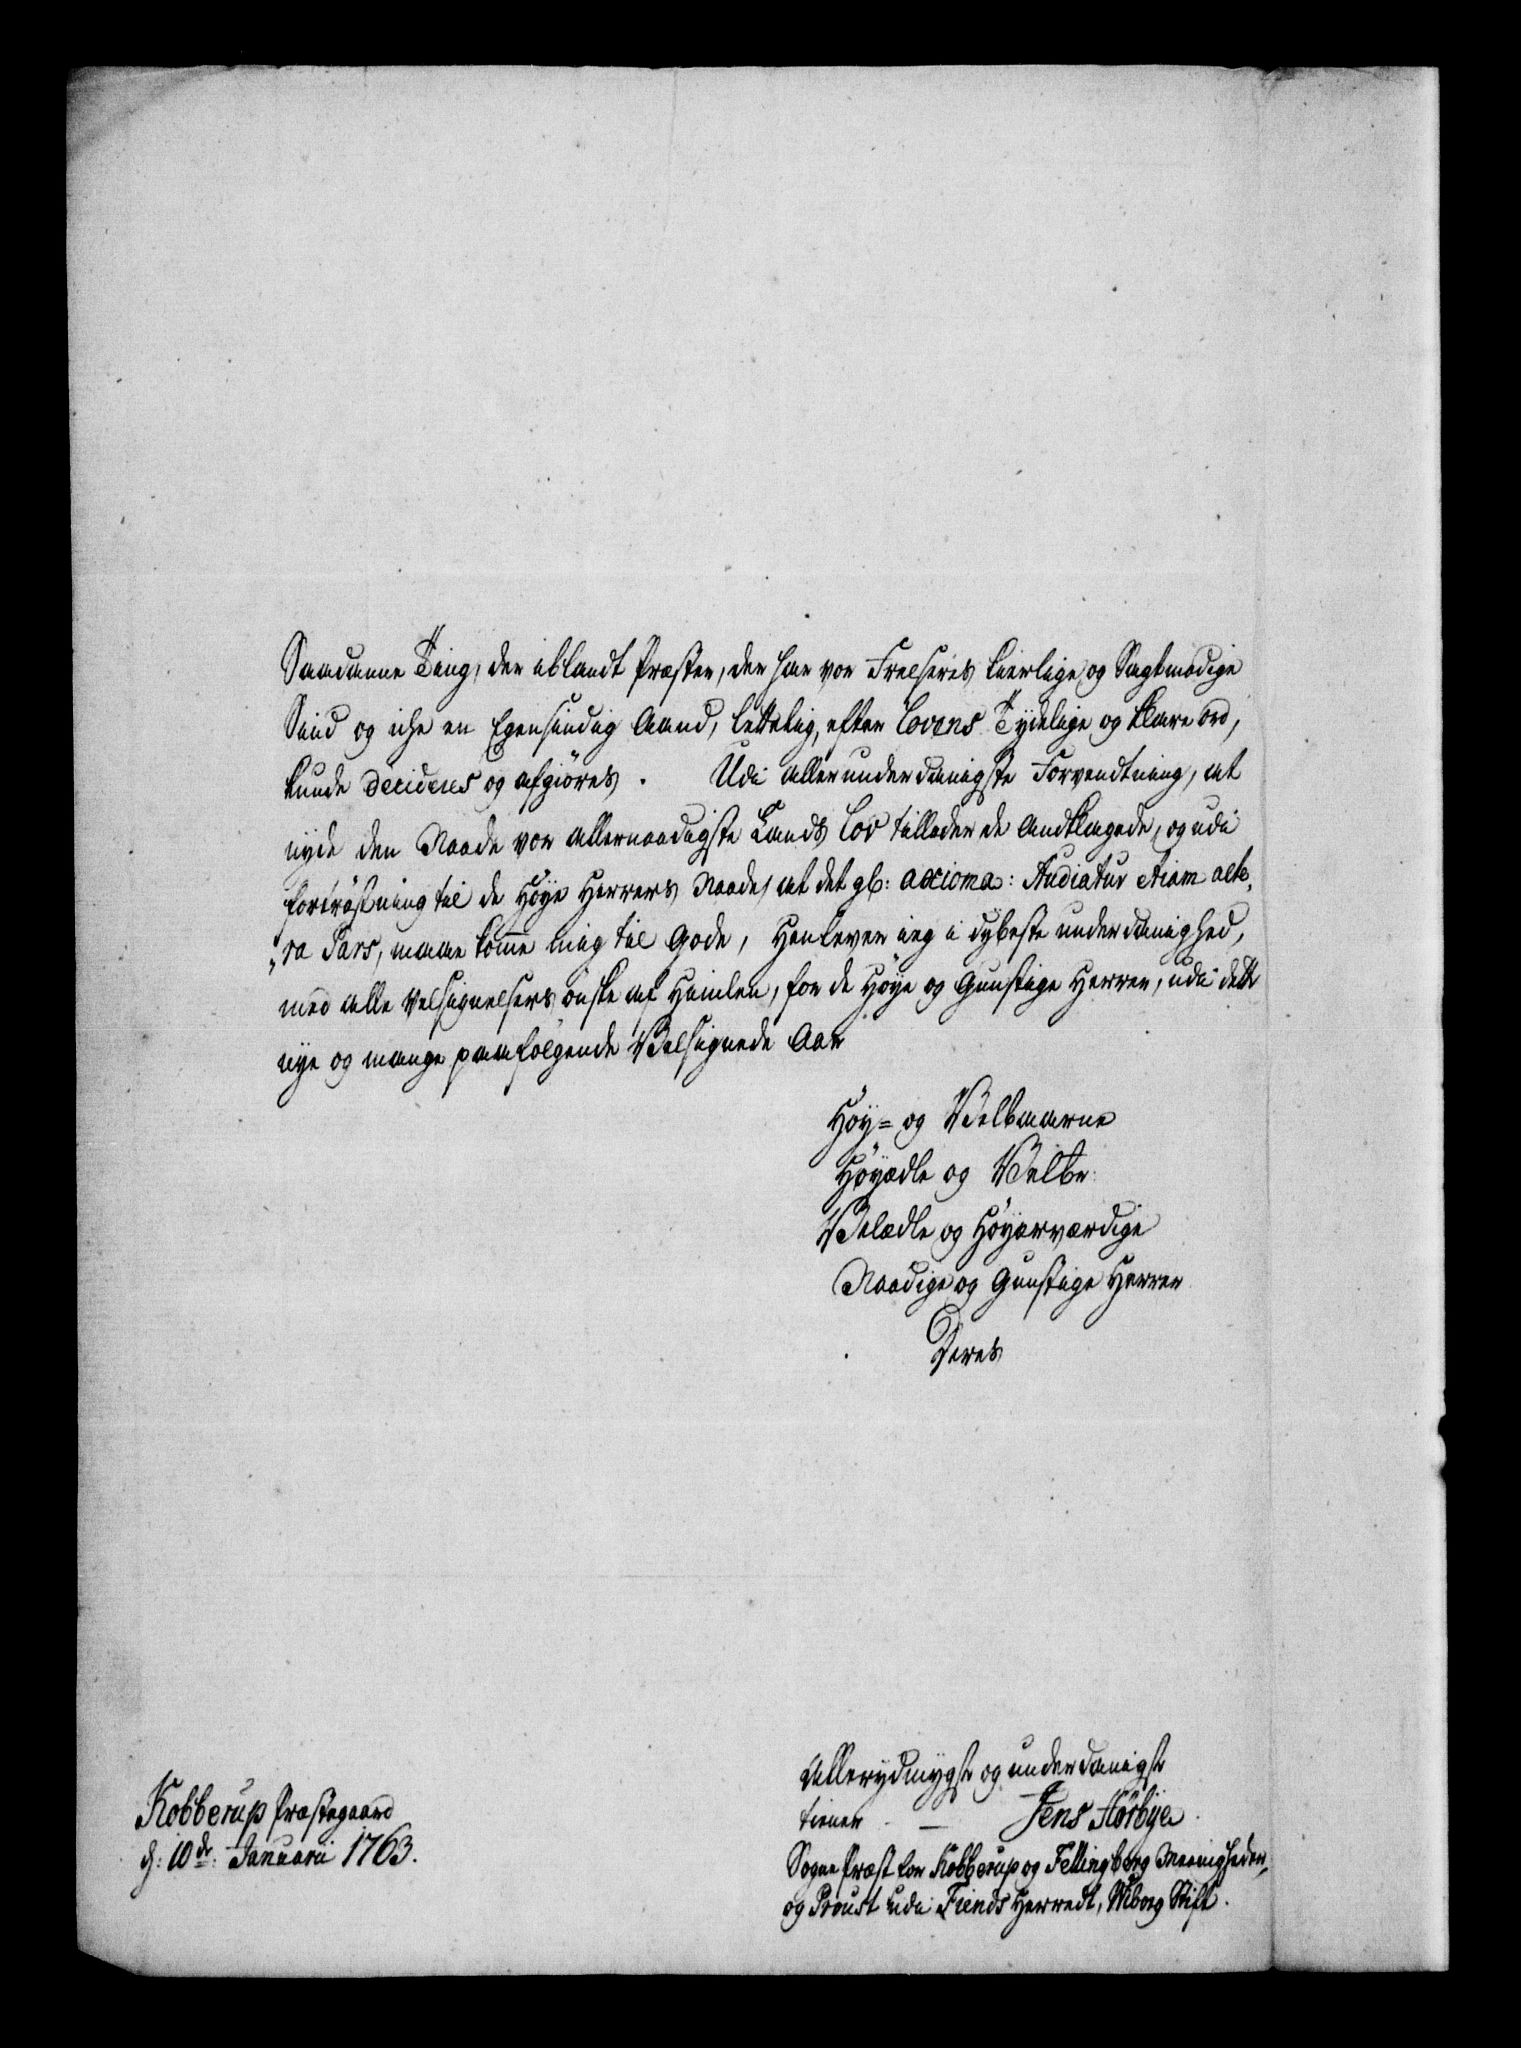 Saadanne Ting, der iblandt Præster, der har vor Frelseris kierlige og Sagtmodige
Sind og iche en Egensindig Aand, lettelig, efter Lovens Tydelige og klare Ord,
kunde decideres og afgiöres. Udi allerunderdanigste Forvendtning, at
nyde den Naade vor allernaadigste Lands Lov tillader de Andklagede, og udi
fortröstning til de Høye Herrers Naade, at det gl: axioma: Audiatur Etiam alte„
„ra Pars, maae komme mig til Gode, Henlever ieg i dybeste underdanighed,
med alle Velsignelsers önske af Himlen, for de Høye og Gunstige Herrer, udi dette
nye og mange paafölgende Velsignede Aar
Høy= og Velbaarne
Høyædle og Velbr:
Velædle og Høyærværdige
Naadige og Gunstige Herrer
Deres
Allerydmygste og underdanigste
tiener — Jens Hörbye.
Sogne Præst for Kobberup og Fellingberg Meenigheder,
og Proust udi Fiends Herredt, Wiborg Stift.
Kobberup Præstegaard
d: 10de Januarii 1763.